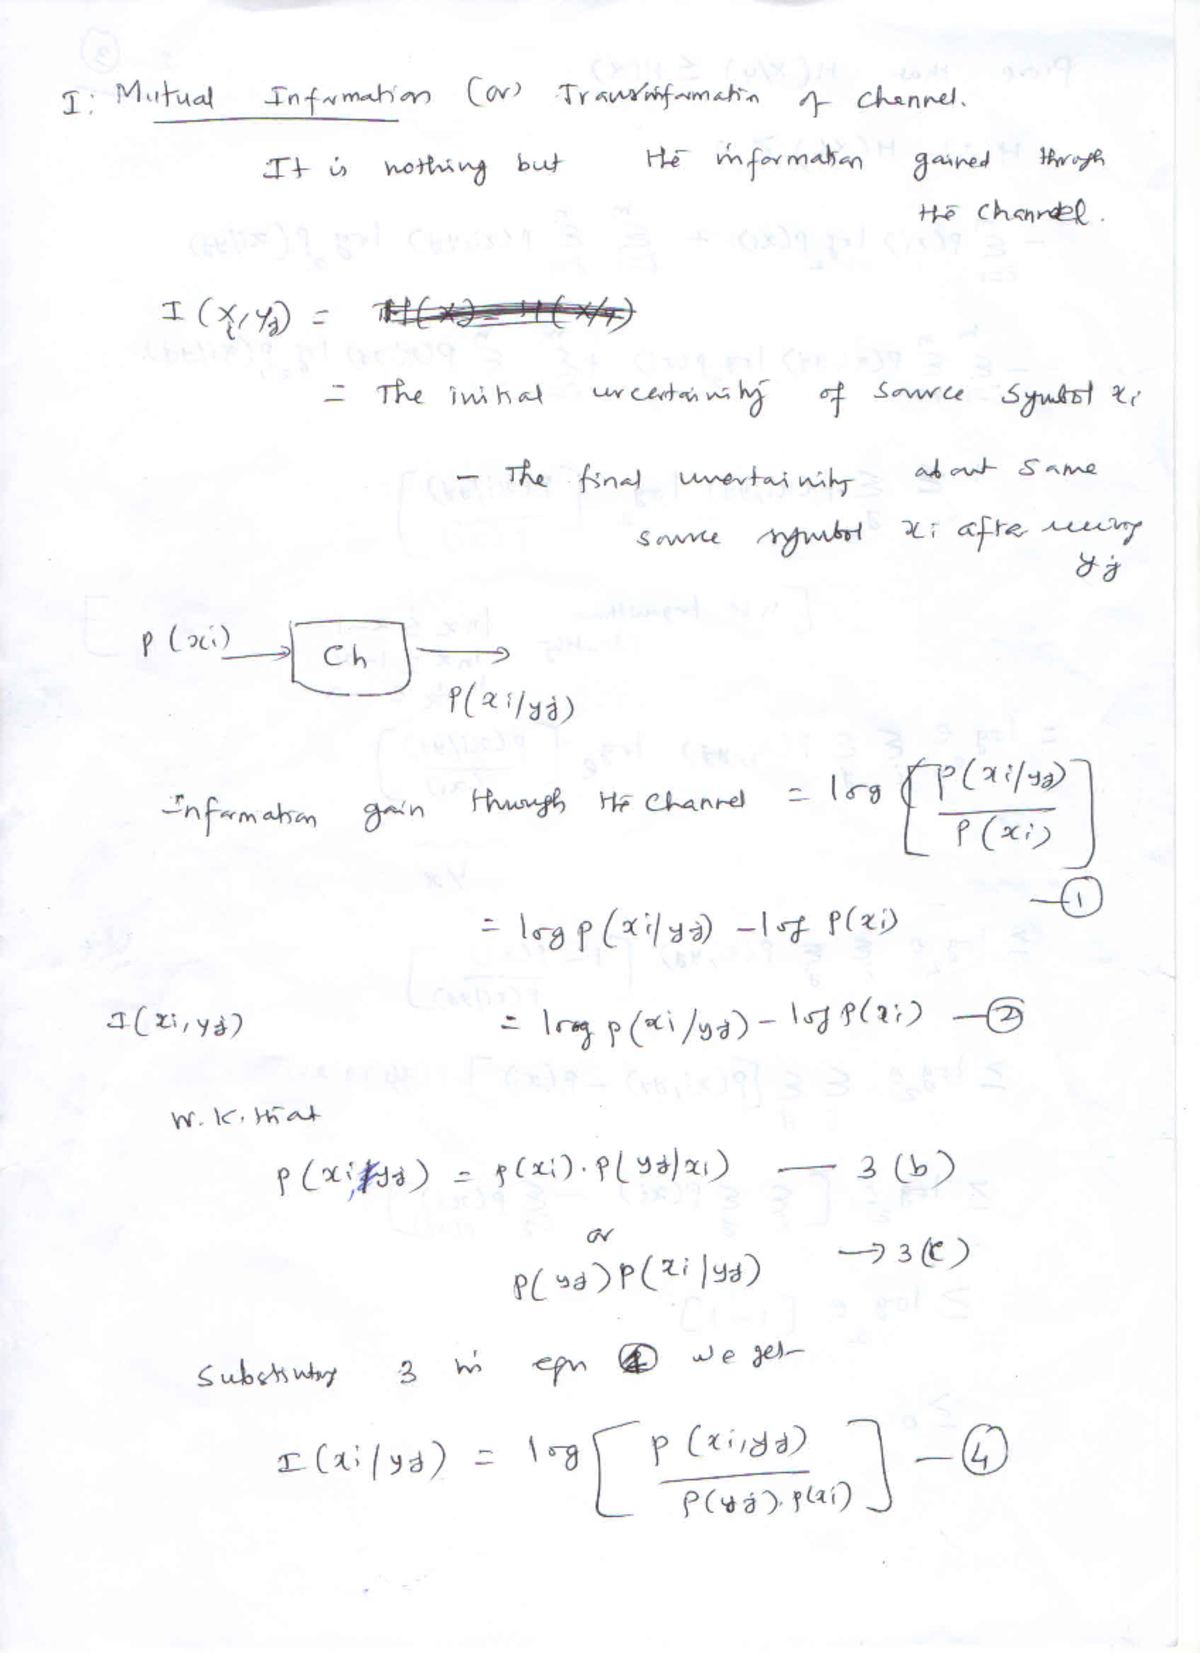 I: Mutual Information (or) Transinformatin of channel.
It is nothing but the information gained through
the channel.
I (Xi, Yj) = H(X) - H(X/Y)
= The initial uncertainity of source symbol xi
- The final uncertainity about same
source symbol xi after
yj
P(xi) → Ch →
P(xi/yj)
Information gain through the channel = log [ P(xi/yj) / P(xi) ]
— ①
= log P(xi/yj) - log P(xi)
I(xi, yj) = log P(xi/yj) - log P(xi) — ②
W.K. that
P(xi, yj) = P(xi) . P(yj/xi) — 3 (b)
or
P(yj) P(xi/yj) → 3(c)
Substituting 3 in eqn we get
I (xi/yj) = log [ P(xi, yj) / P(yj) . P(xi) ] — ④